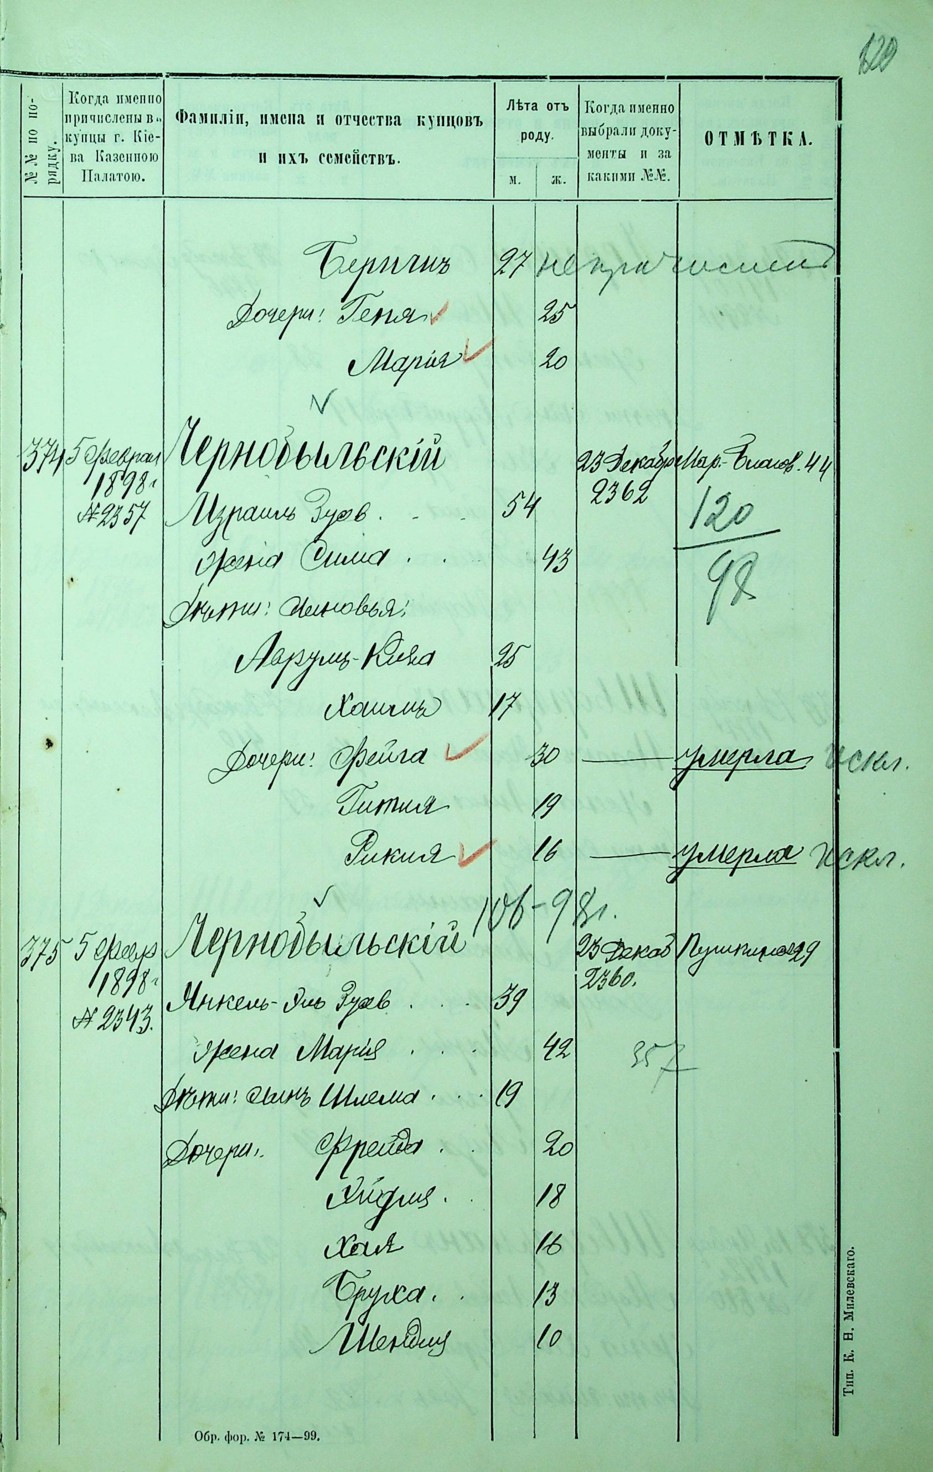 120
№№ по по-
рядку.
Когда именно
причислены въ
купцы г. Кіе-
ва Казенною
Палатою.
Фамиліи, имена и отчества купцовъ
и ихъ семействъ.
Лѣта отъ
роду.
м.
ж.
Когда именно
выбрали доку-
менты и за
какими №№.
ОТМѢТКА.
27
Дочери: Геня 25
Марія 20
374 5 Феврал Чернобыльскій 23 Декабр Мар.-Благов. 44
1898 г 2362
№ 2357 Израиль Зусев. 54 120
Жена Сима 43 98
Дѣти: Сыновья:
25
Хаимъ 17
Дочери: Фейга 30 — умерла искл.
Гитля 19
Рикля 16 — умерла искл.
106-98г.
375 5 Февр Чернобыльскій 23 Декаб Пушкинская 29
1898 г 2360.
№ 2343. Янкель- Зусев 39
Жена Марія 42 357
Дѣти: Сынъ Шлема 19
Дочери: Фрейда 20
18
Хая 16
Бруха. 13
Шендля 10
Обр. фор. № 174—99.
Тип. К. Н. Милевскаго.